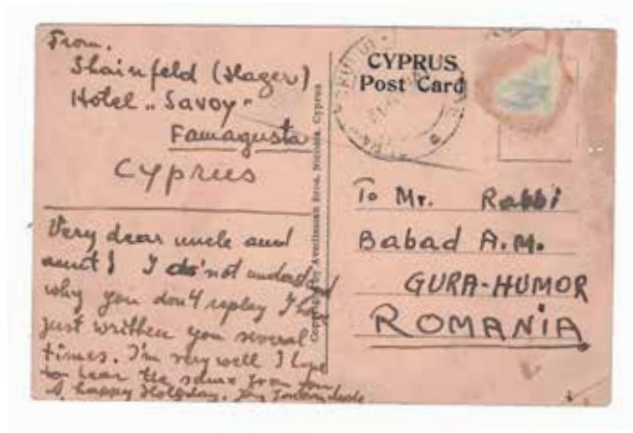 From.
Shainfeld (Hager)
Hotel „Savoy"
Famagusta
Cyprus
Very dear uncle and
aunt! I do'not understand
why you don't replay I have
just written you several
times. I'm very well I hope
to hear the same from you
A happy Holyday.
Copyright by Avedissian Bros. Nicosia, Cyprus
CYPRUS
Post Card
To Mr. Rabbi
Babad A.M.
GURA-HUMOR
ROMANIA